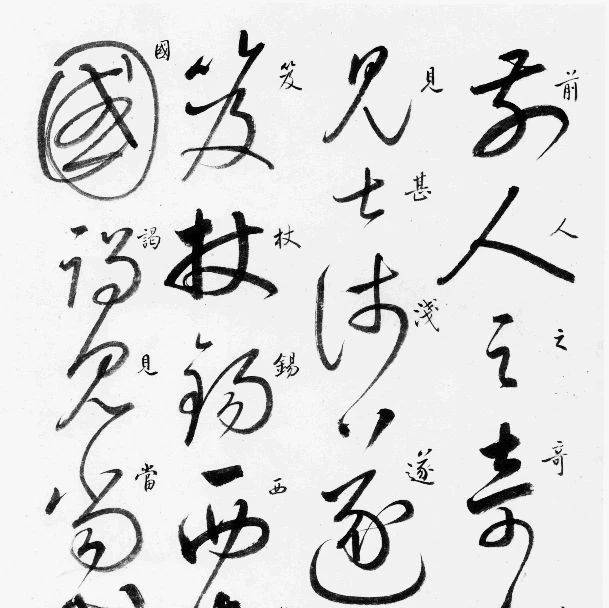 前人之奇
見甚淺遂
笈杖錫西
國謁見當